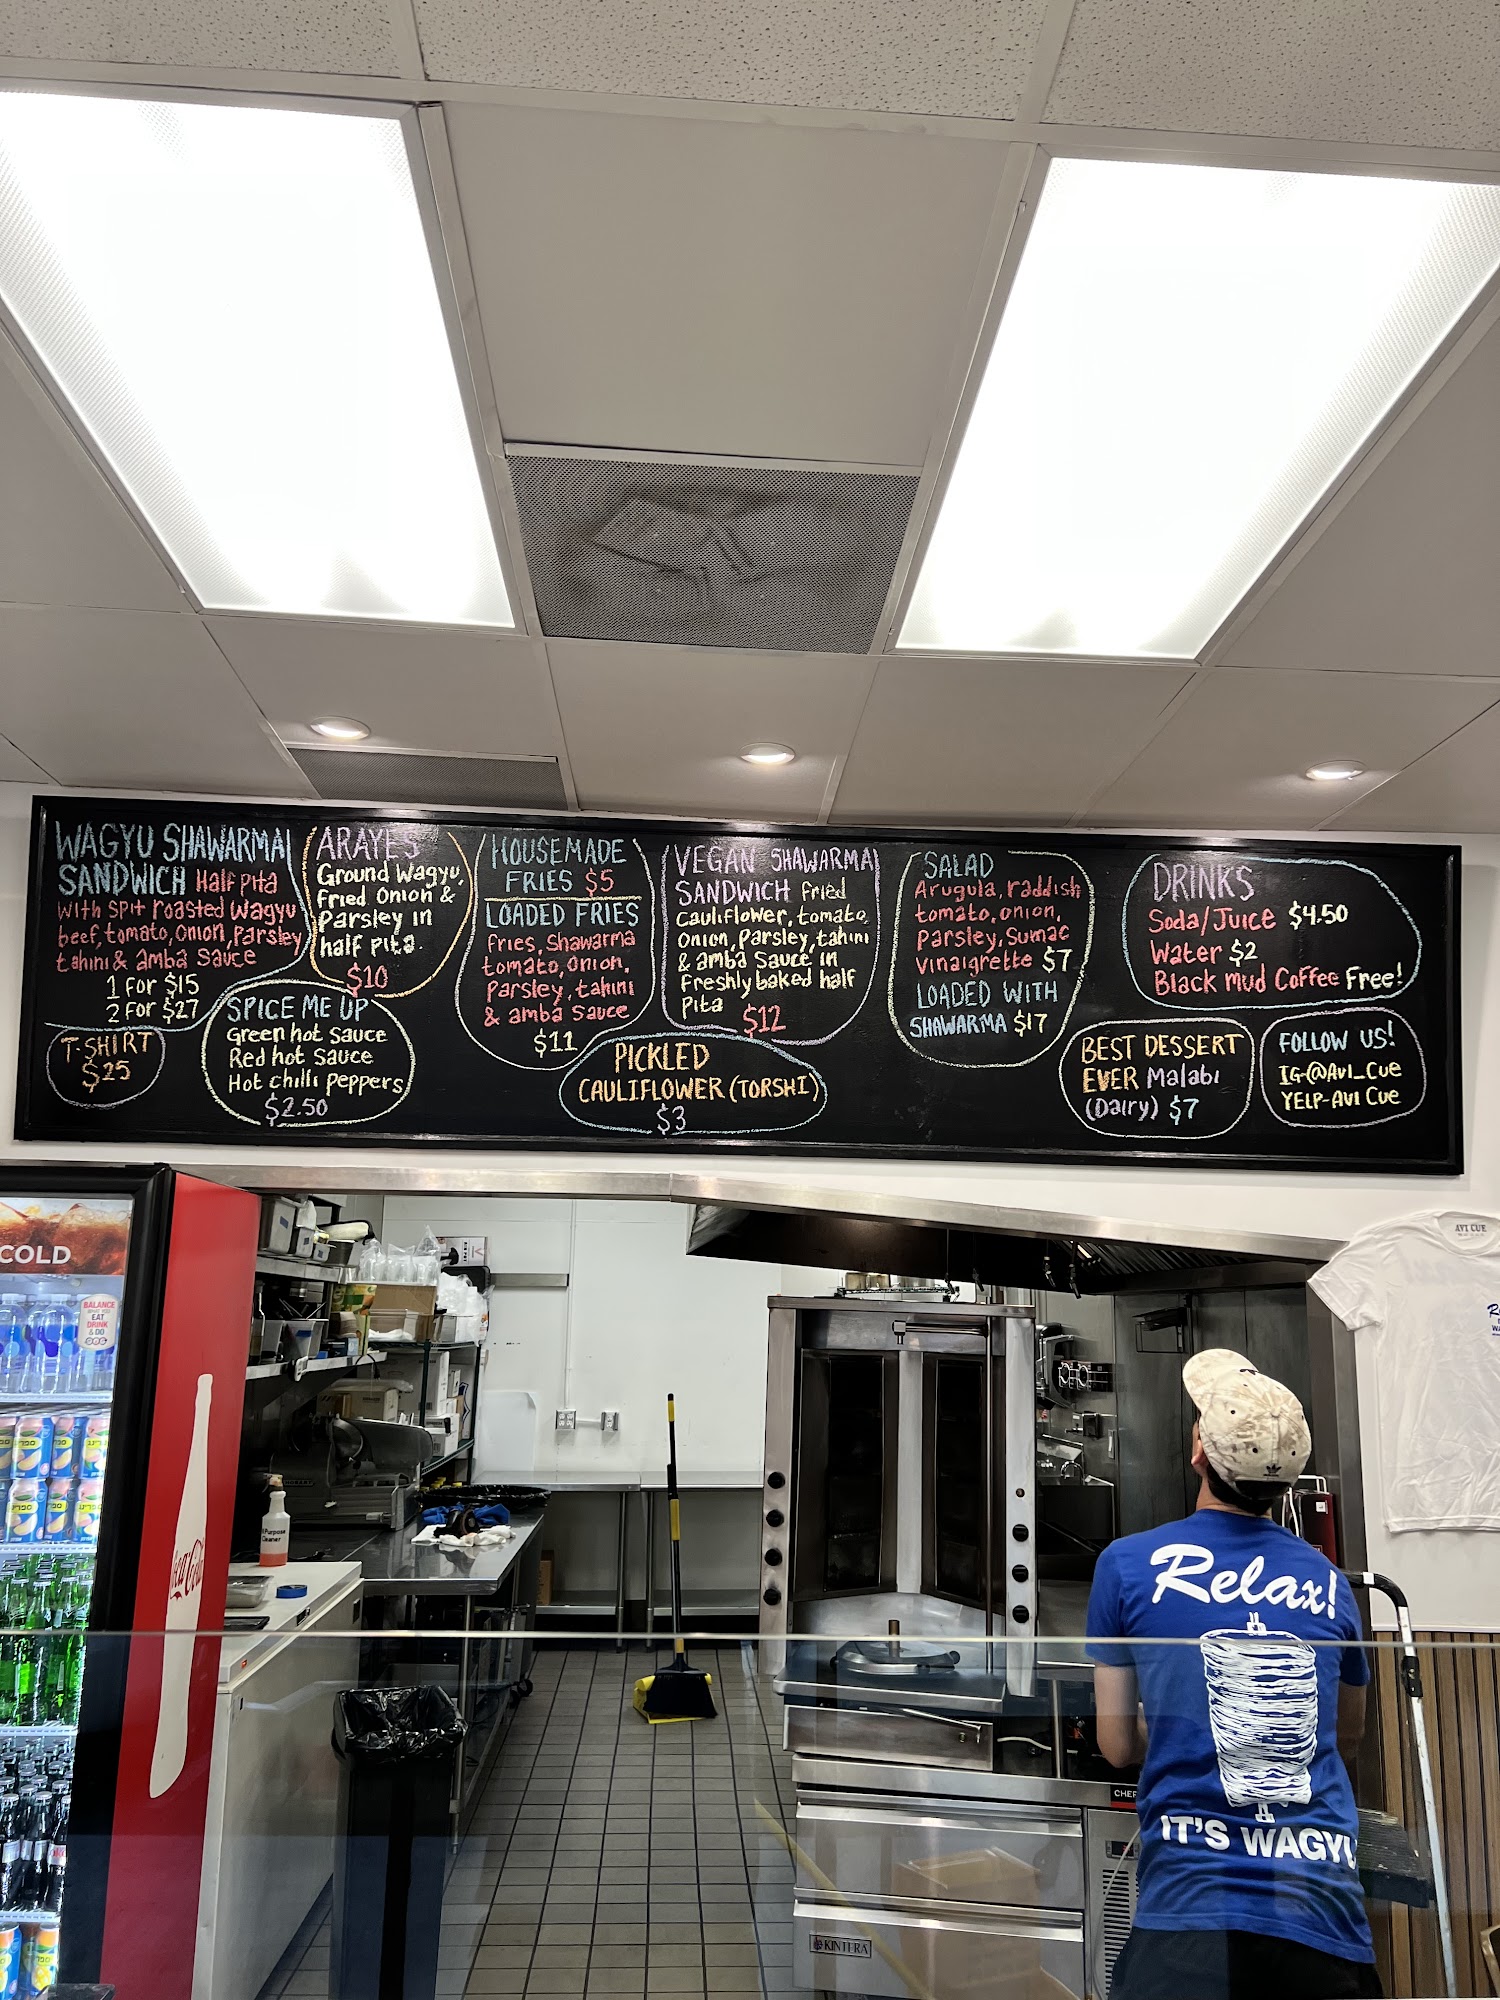 WAGYU SHAWARMA
SANDWICH Half pita
with spit roasted wagyu
beef, tomato, onion, parsley
tahini & amba sauce
1 for $15
2 for $27
T-SHIRT
$25
ARAYES
Ground Wagyu,
fried Onion &
Parsley in
half pita.
$10
SPICE ME UP
Green hot sauce
Red hot sauce
Hot chilli peppers
$2.50
HOUSEMADE
FRIES $5
LOADED FRIES
fries, shawarma
tomato, onion,
parsley, tahini
& amba sauce
$11
PICKLED
CAULIFLOWER (TORSHI)
$3
VEGAN SHAWARMA
SANDWICH fried
cauliflower, tomato,
onion, parsley, tahini
& amba sauce in
freshly baked half
pita
$12
SALAD
Arugula, raddish
tomato, onion,
parsley, sumac
vinaigrette $7
LOADED WITH
SHAWARMA $17
DRINKS
Soda/Juice $4.50
Water $2
Black mud Coffee Free!
BEST DESSERT
EVER Malabi
(Dairy) $7
FOLLOW US!
IG-@Avi_Cue
YELP-Avi Cue
COLD
BALANCE
WHAT YOU
EAT
DRINK
& DO
Purpose
Cleaner
AVI CUE
Relax!
IT'S WAGYU
KINTERA
CHEF